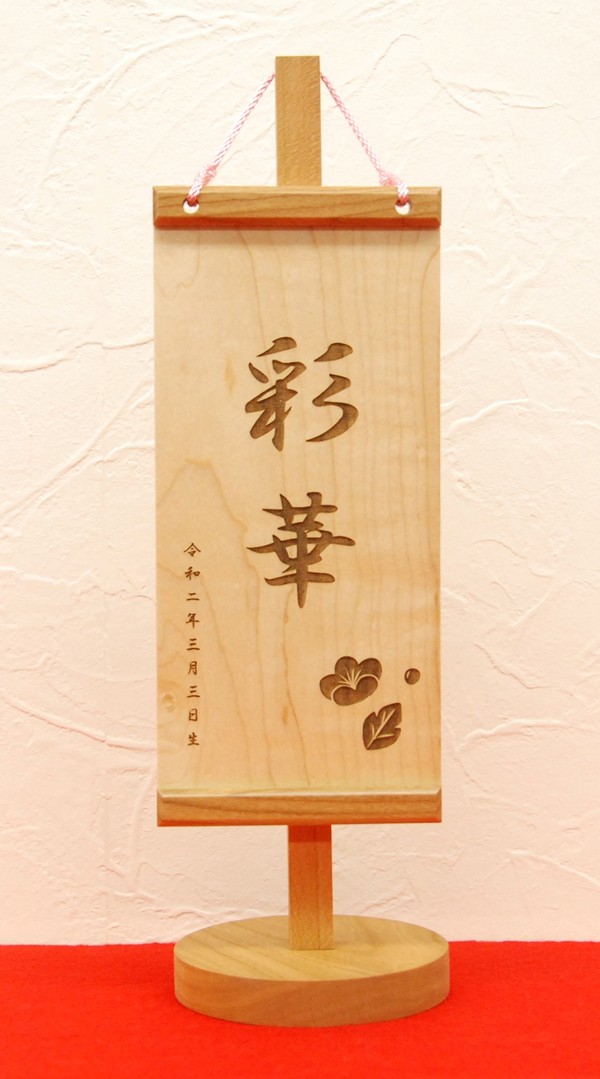 彩華
令和二年三月三日生